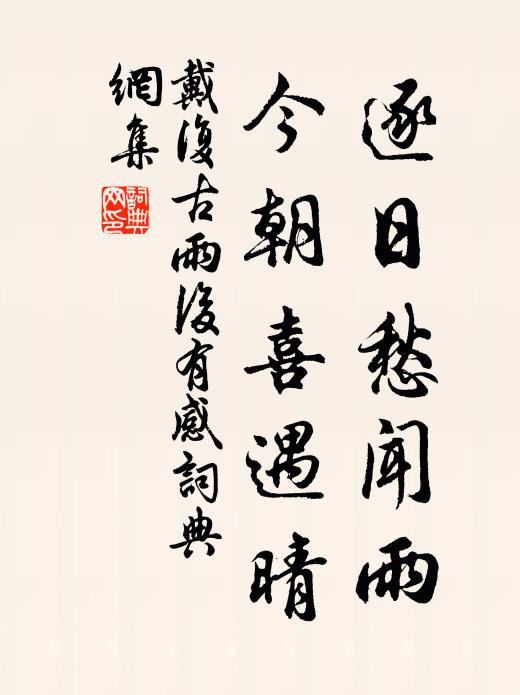 逐日愁聞雨
今朝喜遇晴
戴復古雨後有感詞典
網集
詞典
网印